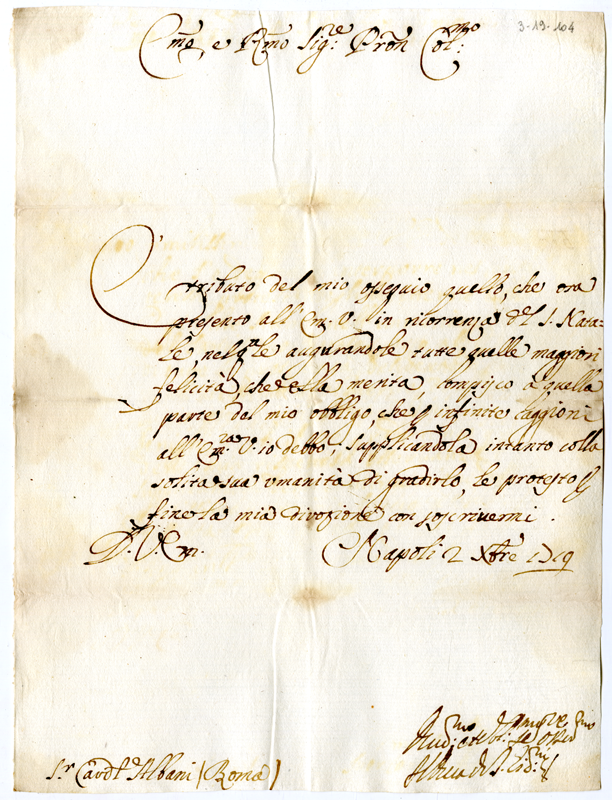 3-19-104
Eme, e Rmo Sig:re Pron Col:mo
E tributo del mio ossequio quello, che ora
presento all'Em. V. in ricorrenza del S. Nata-
le, nel qle augurandole tutte quelle maggiori
felicità, che ella merita, compisco à quella
parte del mio obbligo, che p infinite caggioni
all'Em.za V. io debbo, supplicandola intanto colla
solita sua umanità di gradirlo, le protesto p
fine la mia divozione con soscrivermi.
D. V. Em. Napoli 2 Xbre 1719
S.r Card.l Albani (Roma)